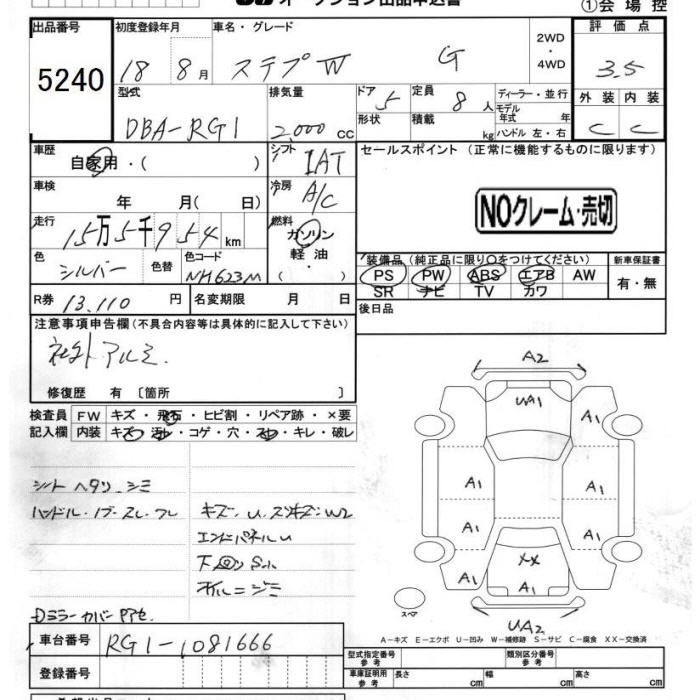 オークション出品申込書
①会場控
出品番号 初度登録年月 車名・グレード 評価点
5240 18 8月 ステプW G 2WD・4WD 3.5
型式 排気量 ドア 5 定員 8人 ディーラー・並行 外装 内装
DBA-RG1 2,000cc 形状 積載 kg モデル年式 年 ハンドル 左・右 C C
車歴 シフト セールスポイント (正常に機能するものに限ります)
自家用・( ) IAT
車検 冷房
年 月( 日) A/C
NOクレーム・売切
走行 燃料
15万5千954km ガソリン
軽油・( )
色 色替 色コード
シルバー NH623M
装備品(純正品に限り○をつけてください) 新車保証書
PS PW ABS エアB AW 有・無
SR ナビ TV カワ
R券 13,110円 名変期限 月 日 後日品
注意事項申告欄(不具合内容等は具体的に記入して下さい)
社外アルミ.
修復歴 有 〔箇所 〕
検査員 FW キズ・飛石・ヒビ割・リペア跡・×要
記入欄 内装 キズ・汚れ・コゲ・穴・スレ・キレ・破レ
シート ヘタリ、シミ
キズ・U・スリキズ・W2
エンドパネルU
Dミラーカバー
A2
UA1
A1
A1
A1 A1
A1 A1
XX
A1 A1 A1
スペア UA2
A-キズ E-エクボ U-凹み W-補修跡 S-サビ C-腐食 XX-交換済
車台番号 RG1-1081666
登録番号
型式指定番号 参考 類別区分番号 参考
車庫証明用 参考 長さ cm 幅 cm 高さ cm